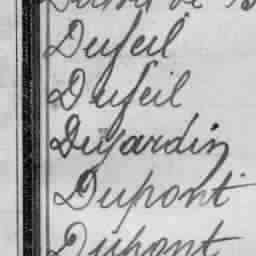 Dufeil
Dufeil
Dujardin
Dupont
Dupont